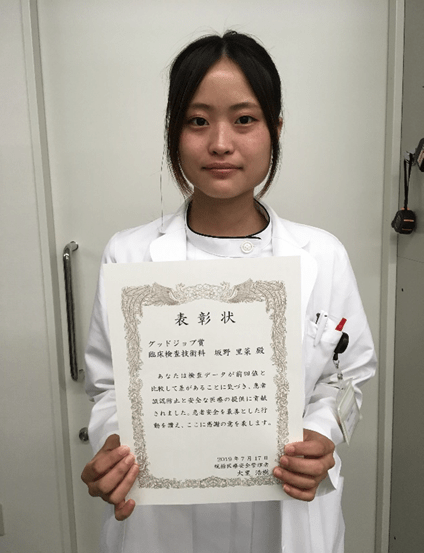 表彰状
グッドジョブ賞
臨床検査技術科 坂野 里菜 殿
あなたは検査データが前回値と
比較して差があることに気づき、患者
誤認防止と安全な医療の提供に貢献
されました。患者安全を最善とした行
動を讃え、ここに感謝の意を表します。
2019年7月17日
統括医療安全管理者
大里 浩樹